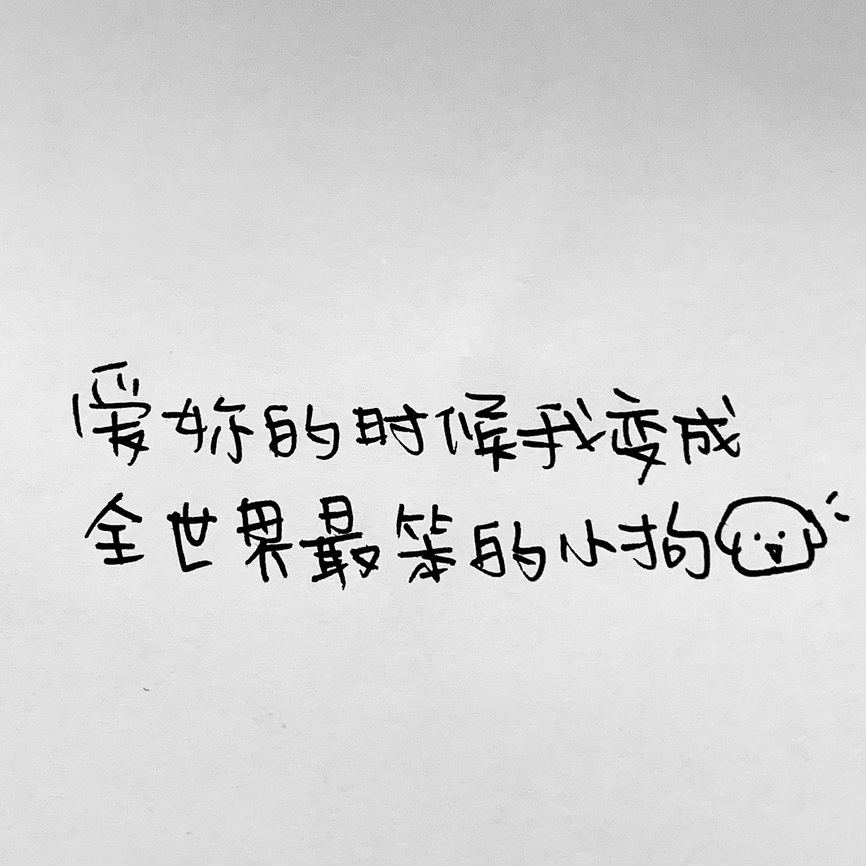 爱妳的时候我变成
全世界最笨的小狗